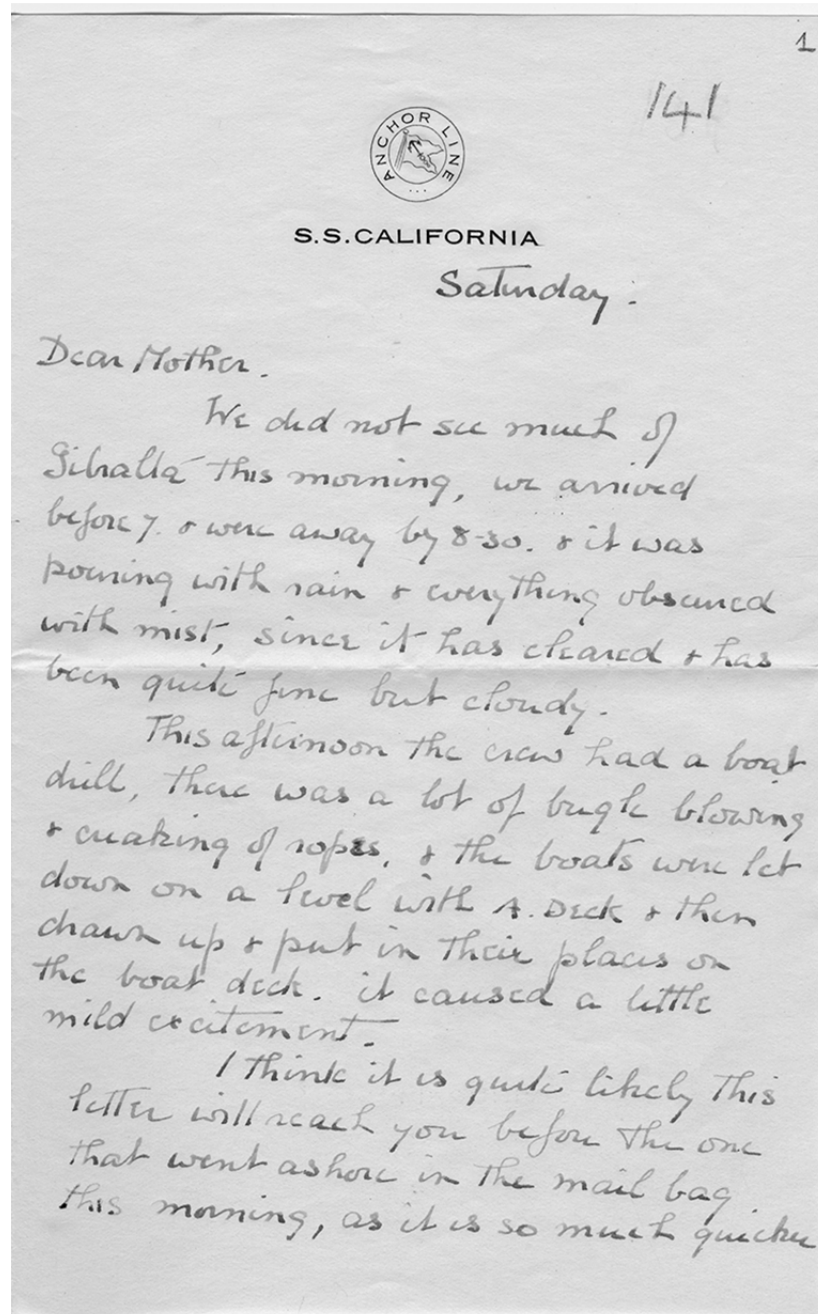 1
141
ANCHOR LINE
S.S. CALIFORNIA
Saturday.
Dear Mother.
We did not see much of
Gibralta this morning, we arrived
before 7. & were away by 8-30. & it was
pouring with rain & everything obscured
with mist, since it has cleared & has
been quite fine but cloudy.
This afternoon the crew had a boat
drill, there was a lot of bugle blowing
& creaking of ropes, & the boats were let
down on a level with A. Deck & then
drawn up & put in their places on
the boat deck. it caused a little
mild excitement.
I think it is quite likely this
letter will reach you before the one
that went ashore in the mail bag
this morning, as it is so much quicker